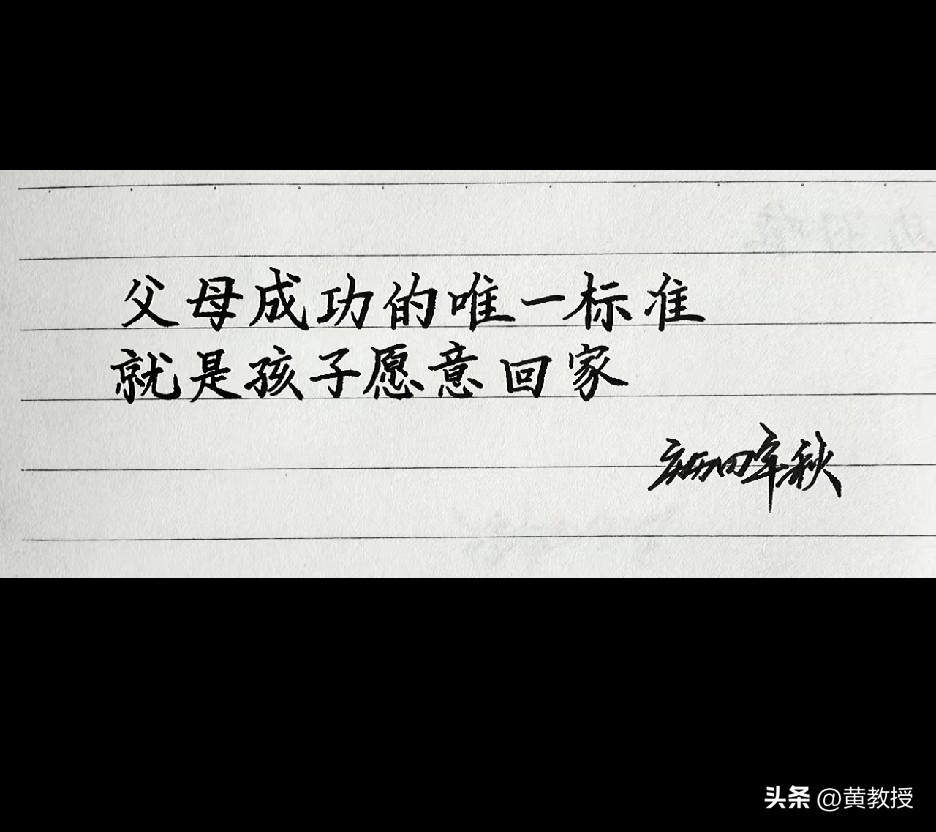 父母成功的唯一标准
就是孩子愿意回家
秋
头条 @黄教授